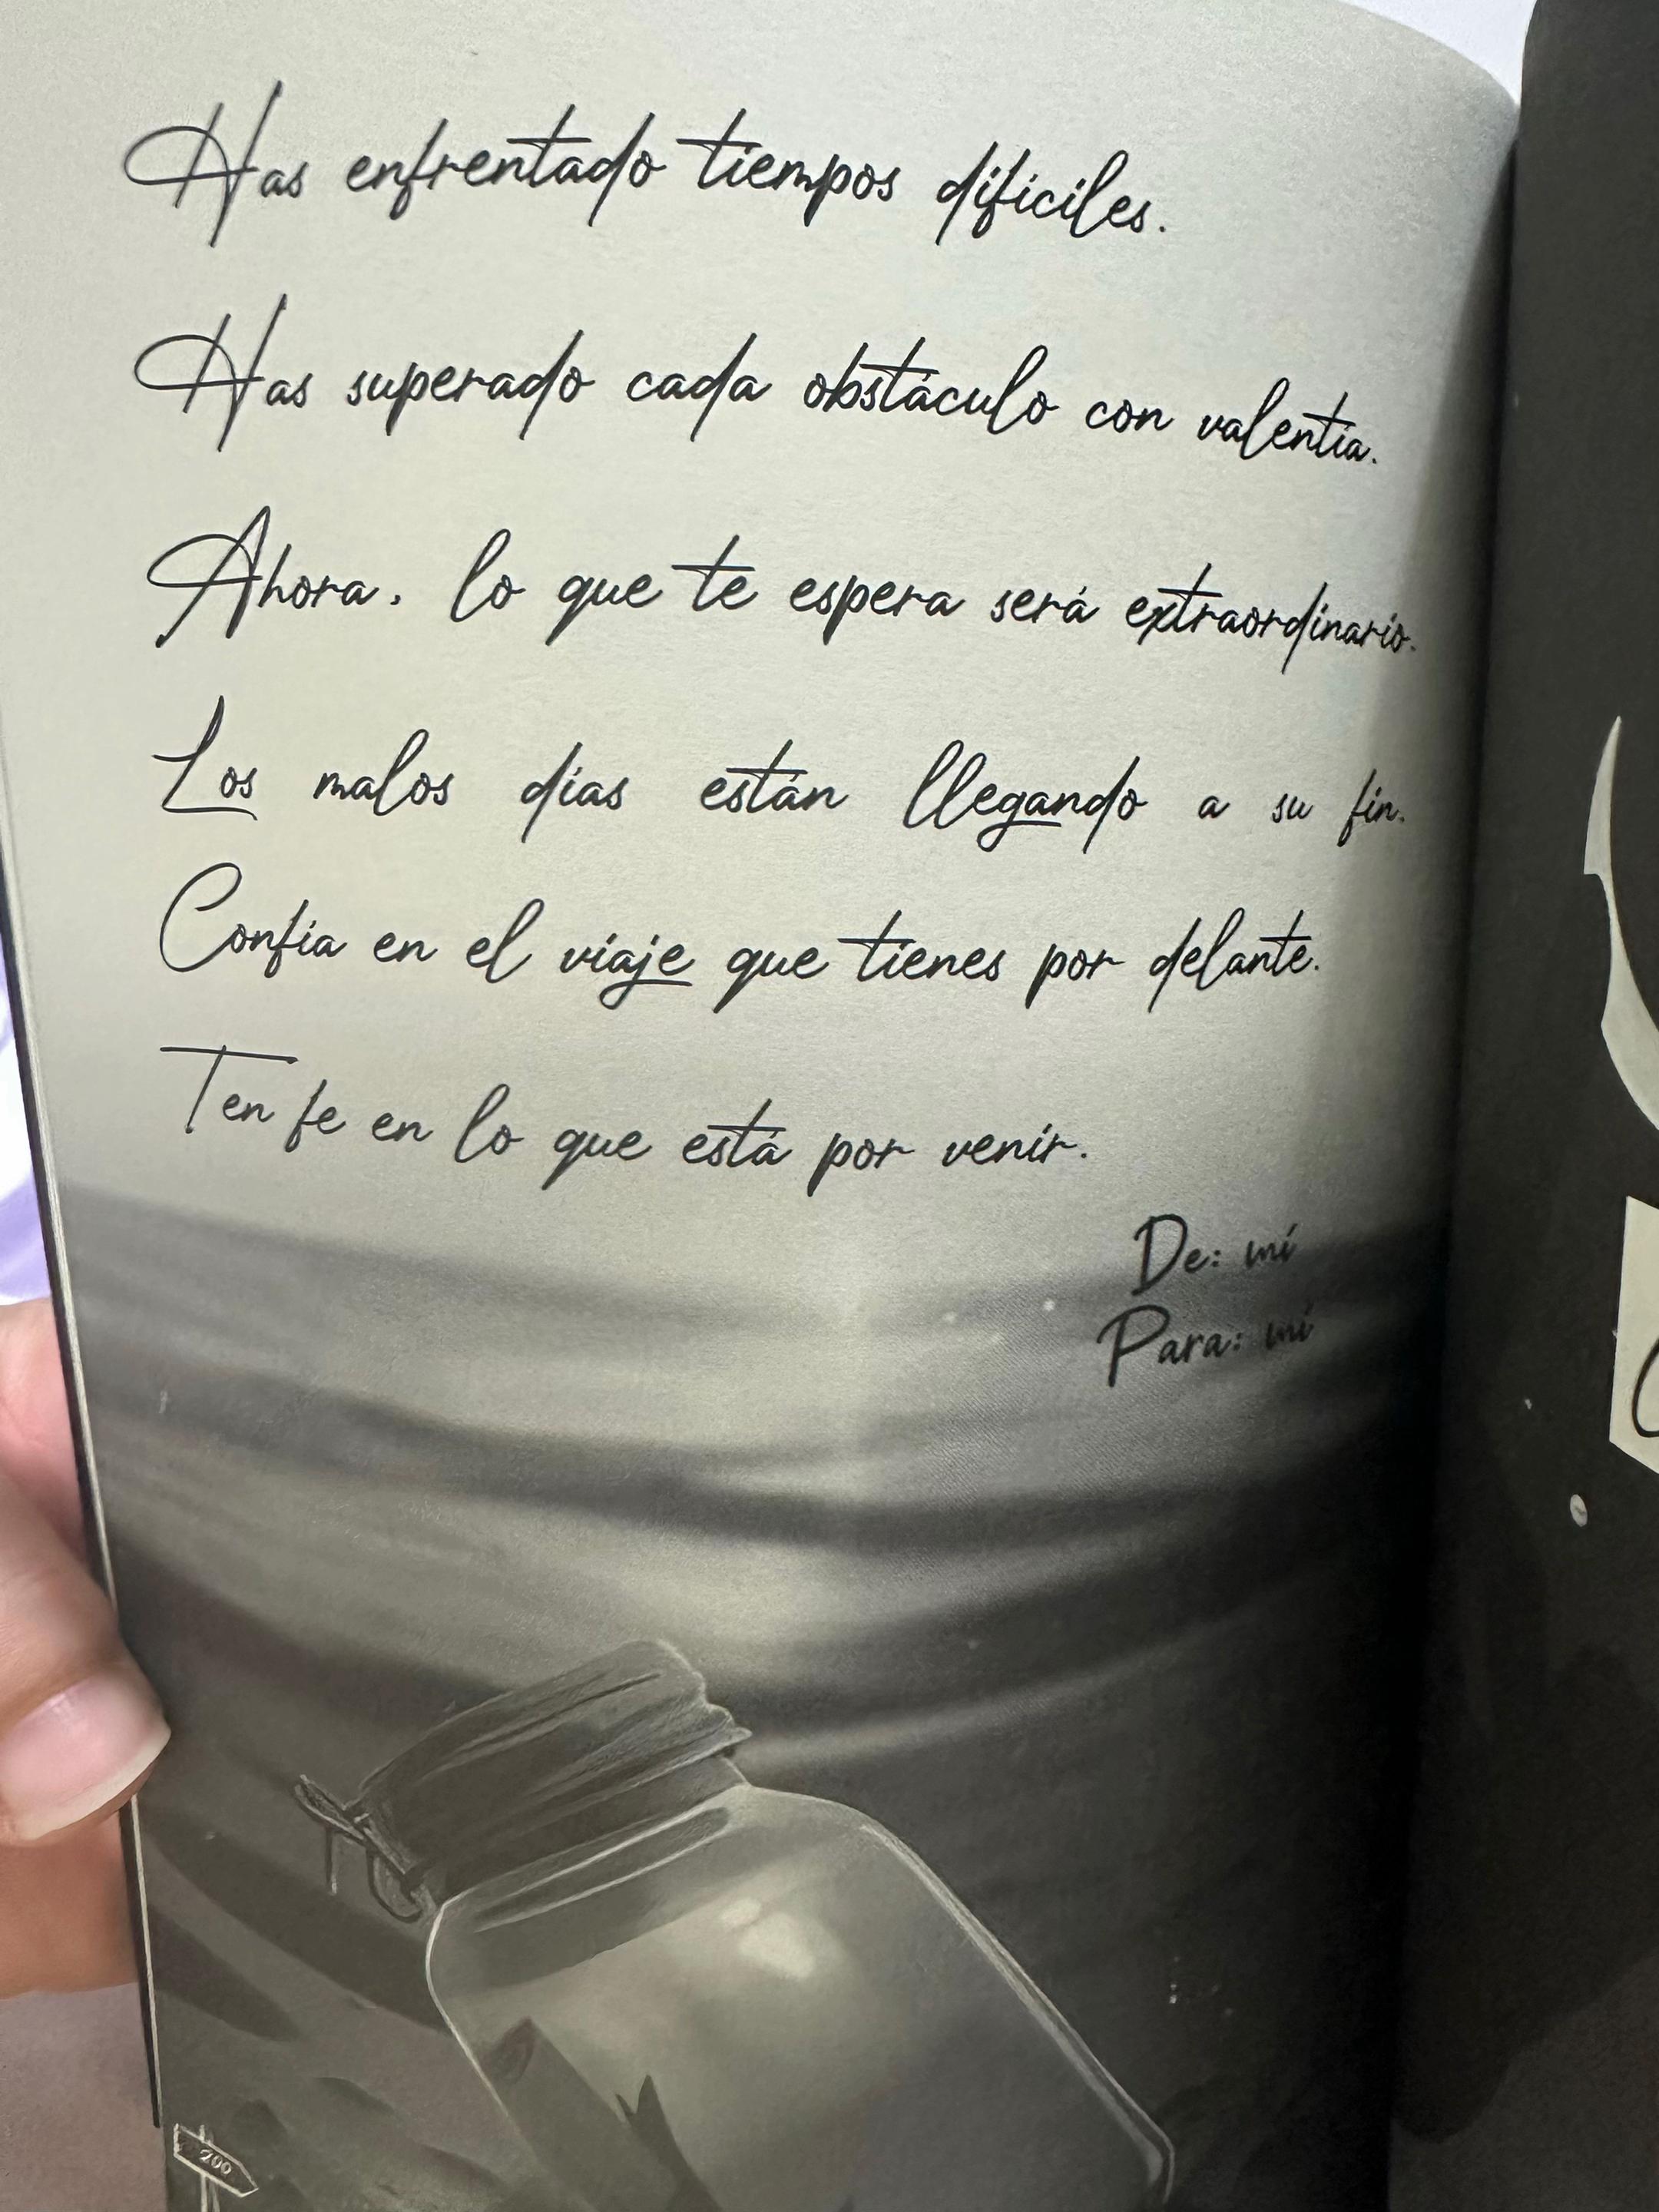 Has enfrentado tiempos difíciles.
Has superado cada obstáculo con valentía.
Ahora, lo que te espera será extraordinario.
Los malos días están llegando a su fin.
Confía en el viaje que tienes por delante.
Ten fe en lo que está por venir.
De: mí
Para: mí
200